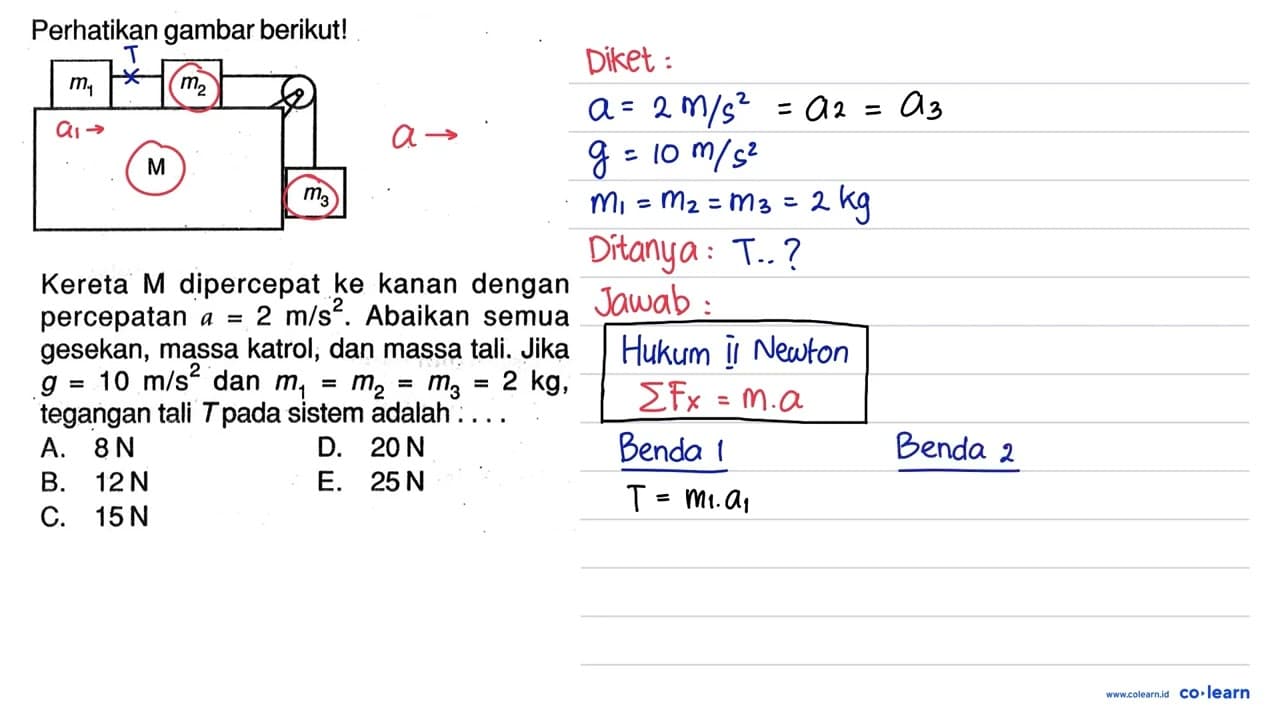 Perhatikan gambar berikut!
T
m₁
m₂
a₁ →
M
m₃
a →
Kereta M dipercepat ke kanan dengan
percepatan a = 2 m/s². Abaikan semua
gesekan, massa katrol, dan massa tali. Jika
g = 10 m/s² dan m₁ = m₂ = m₃ = 2 kg,
tegangan tali T pada sistem adalah . . . .
A. 8 N
B. 12 N
C. 15 N
D. 20 N
E. 25 N
Diket :
a = 2 m/s² = a₂ = a₃
g = 10 m/s²
m₁ = m₂ = m₃ = 2 kg
Ditanya : T.. ?
Jawab :
Hukum II Newton
ΣFx = m.a
Benda 1
T = m₁.a₁
Benda 2
www.colearn.id co·learn